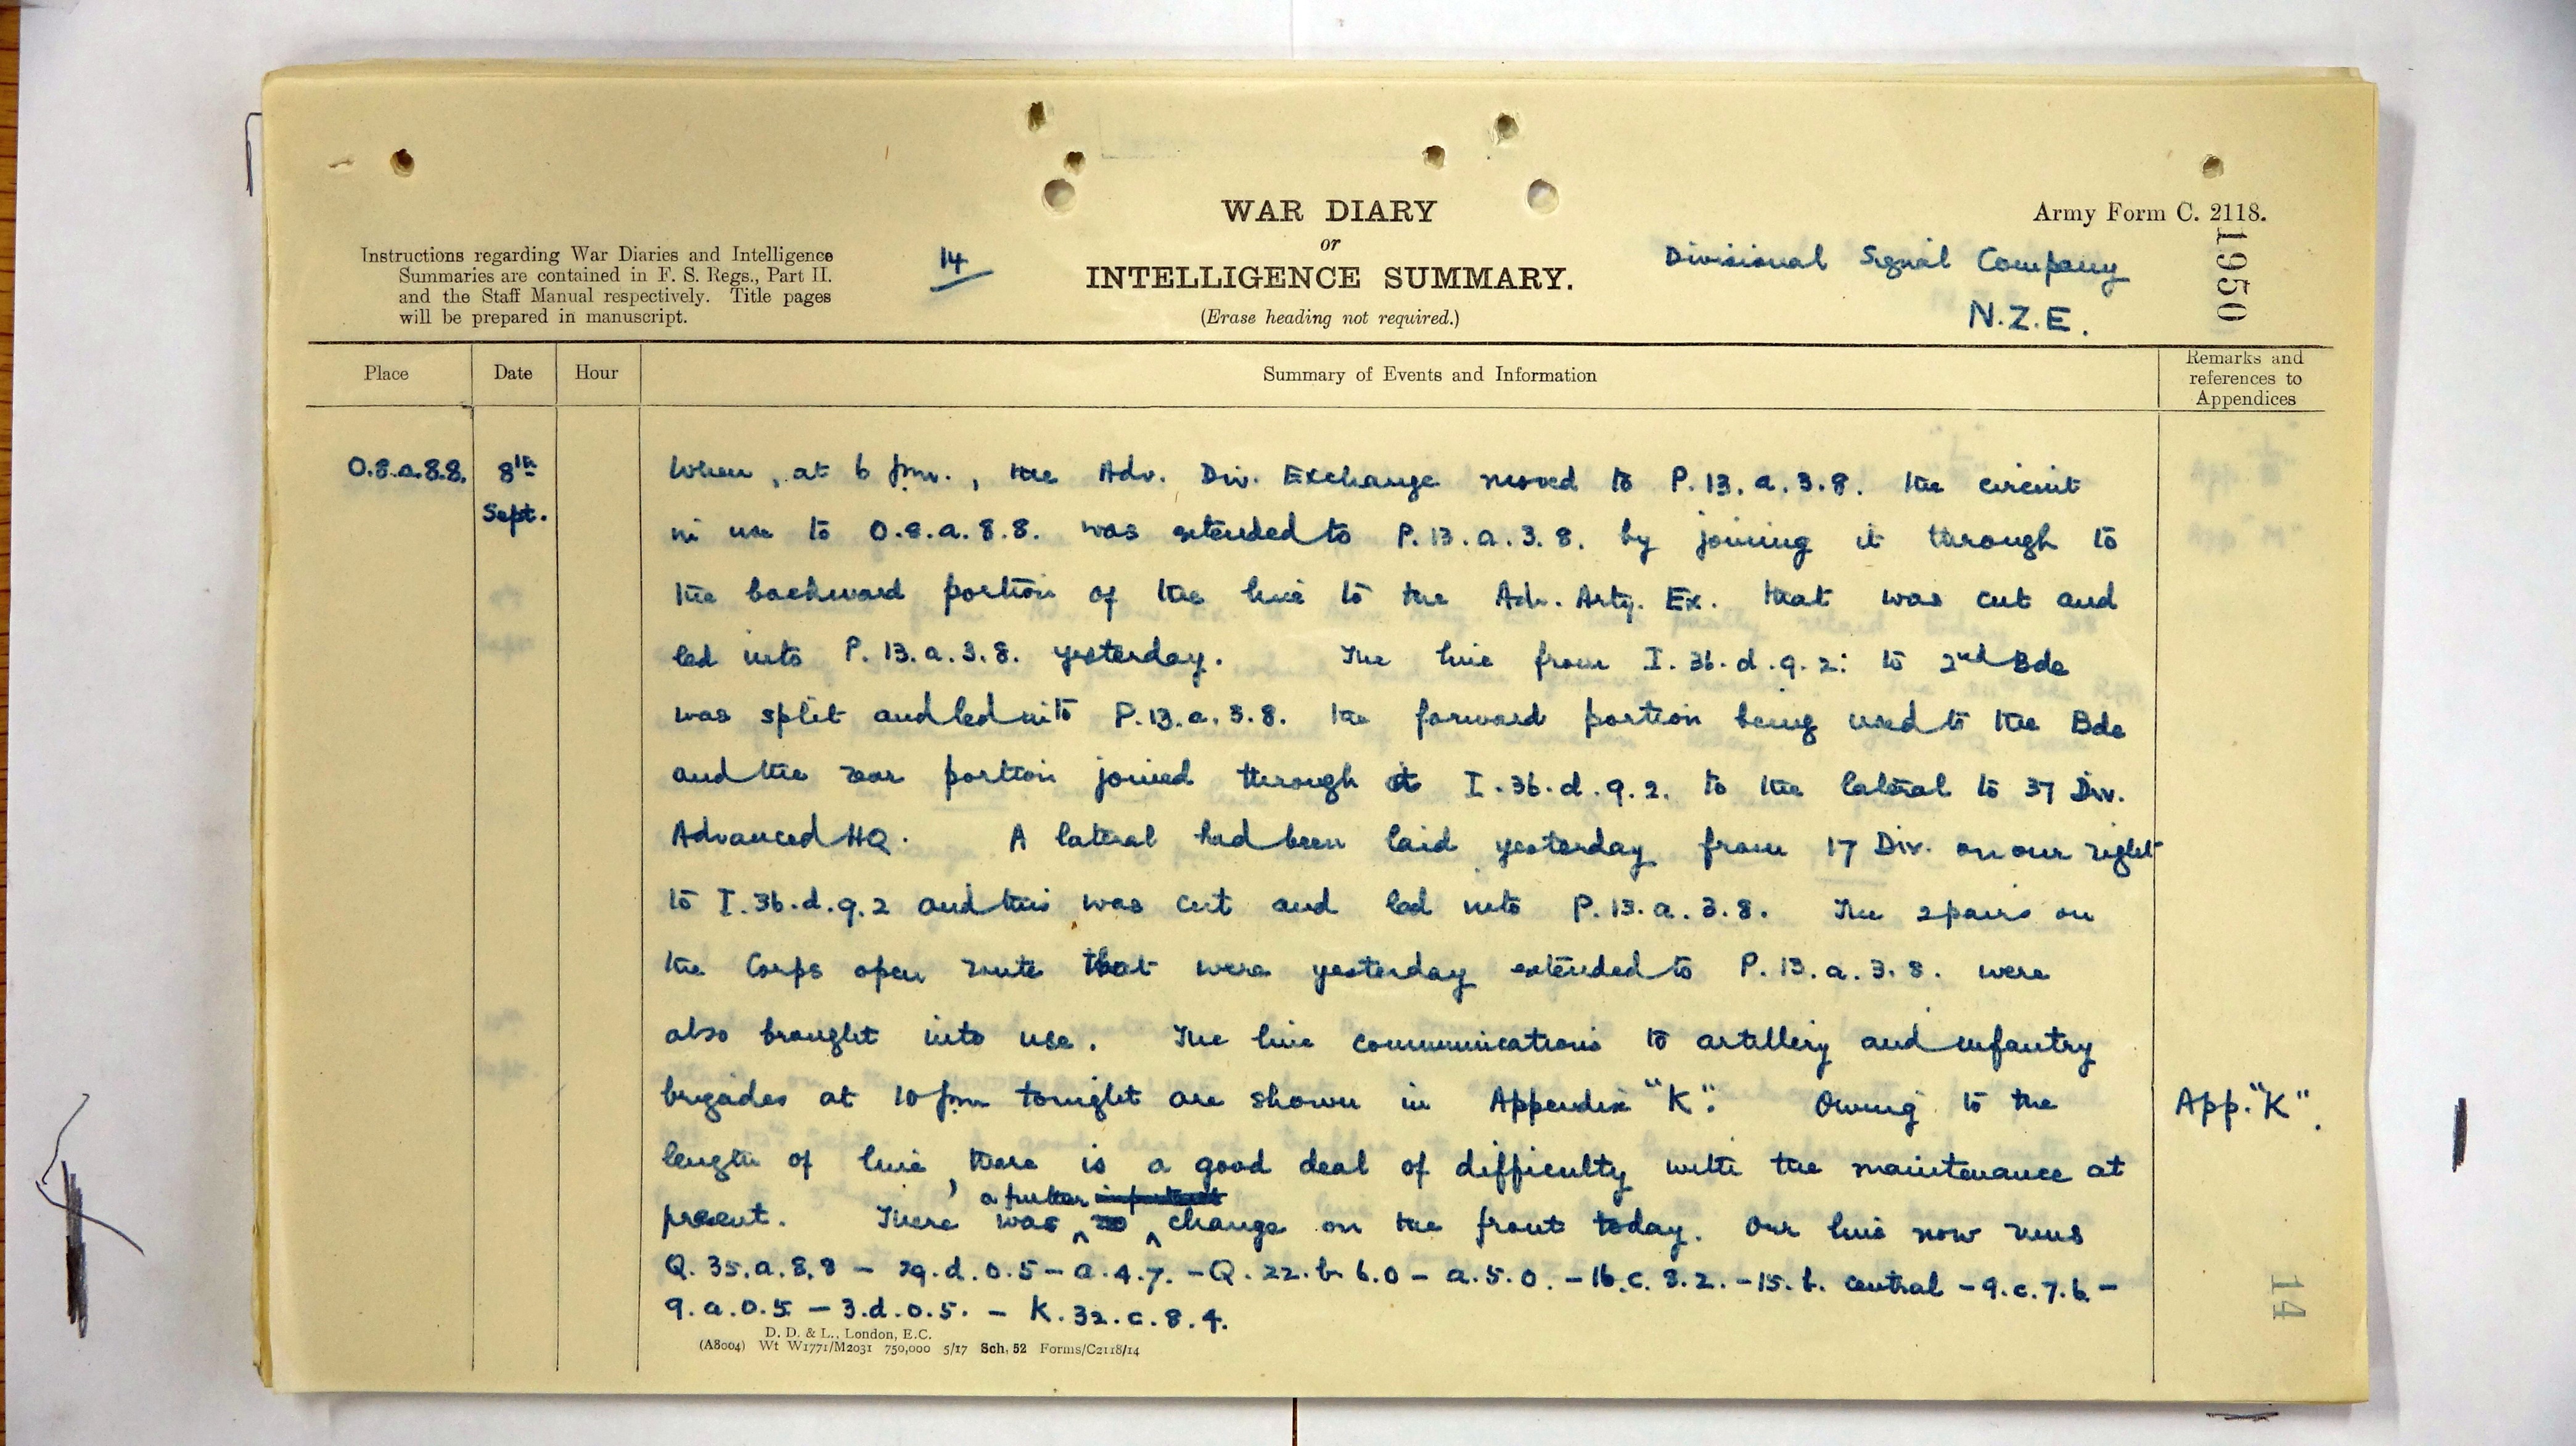 WAR DIARY
or
INTELLIGENCE SUMMARY.
(Erase heading not required.)
Army Form C. 2118.
Instructions regarding War Diaries and Intelligence
Summaries are contained in F. S. Regs., Part II.
and the Staff Manual respectively. Title pages
will be prepared in manuscript.
14
Divisional Signal Company
N.Z.E.
1950
Place
Date
Hour
Summary of Events and Information
Remarks and
references to
Appendices
O.8.a.8.8.
8th
Sept.
When, at 6 p.m., the Adv. Div. Exchange moved to P.13.a.3.8. the circuit
in use to O.8.a.8.8. was extended to P.13.a.3.8. by joining it through to
the backward portion of the line to the Adv. Arty. Ex. that was cut and
led into P.13.a.3.8. yesterday. The line from I.36.d.9.2. to 2nd Bde
was split and led into P.13.a.3.8. the forward portion being used to the Bde
and the rear portion joined through at I.36.d.9.2. to the lateral to 37 Div.
Advanced HQ. A lateral had been laid yesterday from 17 Div. on our right
to I.36.d.9.2 and this was cut and led into P.13.a.3.8. The 2 pairs on
the Corps open route that were yesterday extended to P.13.a.3.8. were
also brought into use. The line communications to artillery and infantry
brigades at 10 pm tonight are shown in Appendix "K". Owing to the
App. "K".
length of line, there is a good deal of difficulty with the maintenance at
a further important
present. There was no change on the front today. Our line now runs
Q.35.a.8.8 - 29.d.0.5 - a.4.7. - Q.22.b.6.0 - a.5.0. - 16.c.8.2. - 15.b. central - 9.c.7.6 -
9.a.0.5 - 3.d.0.5. - K.32.c.8.4.
14
D. D. & L., London, E.C.
(A8004) Wt W1771/M2031 750,000 5/17 Sch. 52 Forms/C2118/14